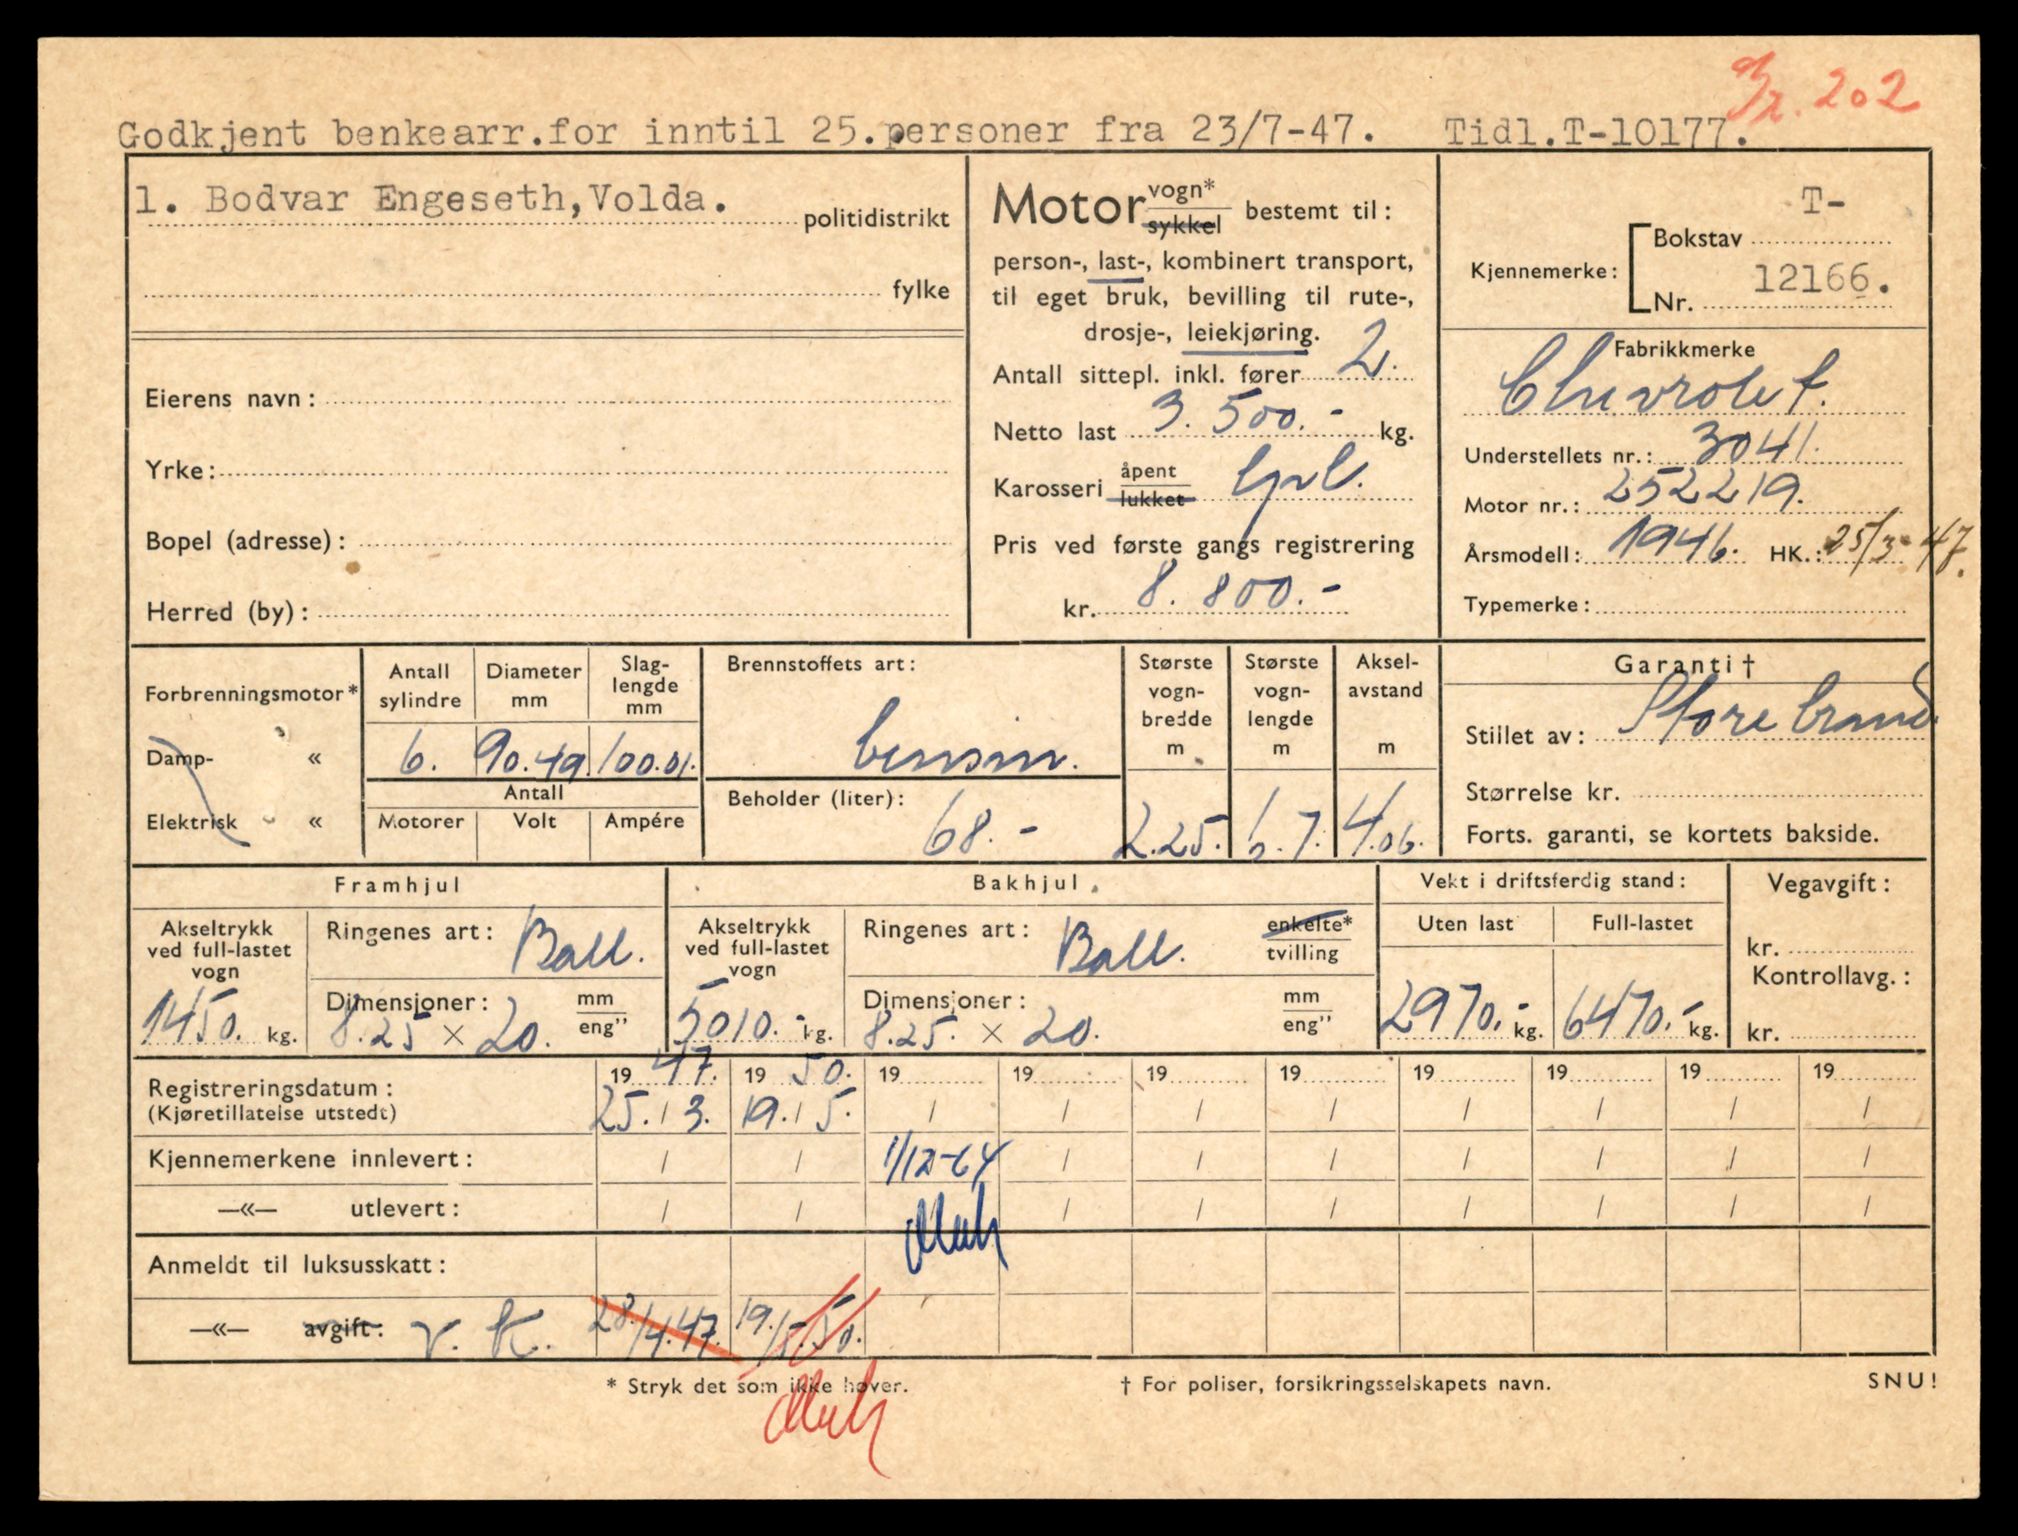 202
Godkjent benkearr.for inntil 25.personer fra 23/7-47. Tidl.T-10177.
1. Bodvar Engeseth,Volda.
politidistrikt
fylke
Eierens navn:
Yrke:
Bopel (adresse):
Herred (by):
Motor vogn* sykkel bestemt til:
person-, last-, kombinert transport,
til eget bruk, bevilling til rute-,
drosje-, leiekjøring.
Antall sittepl. inkl. fører 2.
Netto last 3.500.- kg.
Karosseri åpent lukket
Pris ved første gangs registrering
kr. 8.800.-
Kjennemerke: Bokstav T-
Nr. 12166.
Fabrikkmerke
Chevrolet.
Understellets nr.: 3041.
Motor nr.: 252219.
Årsmodell: 1946. HK.: 25/3-47.
Typemerke:
Forbrenningsmotor*
Damp- «
Elektrisk «
Antall sylindre
Diameter mm
Slag-lengde mm
6. 90.49. 100.01.
Antall
Motorer Volt Ampére
Brennstoffets art:
bensin.
Beholder (liter):
68.-
Største vogn-bredde m
2.25.
Største vogn-lengde m
6.7.
Aksel-avstand m
4.06.
Garanti†
Stillet av: Storebrand.
Størrelse kr.
Forts. garanti, se kortets bakside.
Framhjul
Akseltrykk ved full-lastet vogn
1450. kg.
Ringenes art: Ball.
Dimensjoner: mm eng”
8.25 × 20.
Bakhjul
Akseltrykk ved full-lastet vogn
5010.- kg.
Ringenes art: Ball. enkelte* tvilling
Dimensjoner: mm eng”
8.25. × 20.
Vekt i driftsferdig stand:
Uten last Full-lastet
2970.- kg. 6470.- kg.
Vegavgift:
kr.
Kontrollavg.:
kr.
Registreringsdatum: 19 47. 19 50. 19 19 19 19 19 19 19 19
(Kjøretillatelse utstedt) 25./3. 19./5. / / / / / / / /
Kjennemerkene innlevert: / / 1/12-64 / / / / / / /
—«— utlevert: / / / / / / / / /
Anmeldt til luksusskatt:
—«— avgift: v. k. 28./4.47. 19./5.50.
* Stryk det som ikke høver.
† For poliser, forsikringsselskapets navn.
SNU!